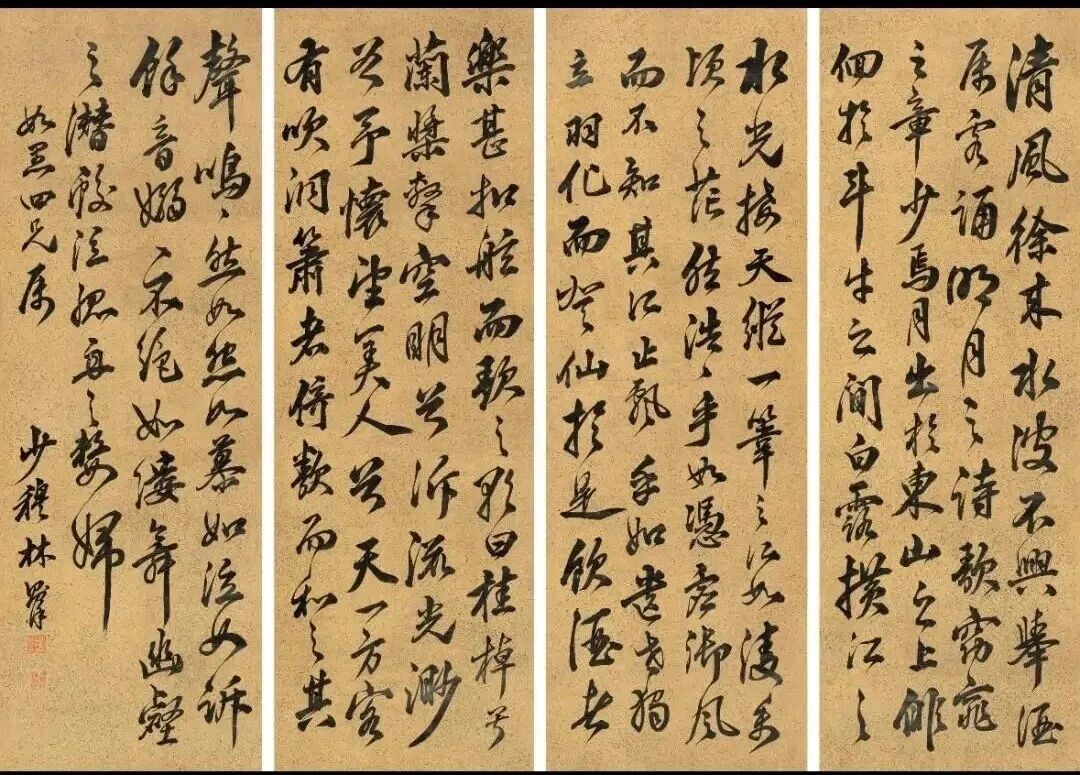 清風徐来水波不興舉酒
属客誦明月之詩歌窈窕
之章少焉月出於東山之上俳
佪於斗牛之間白露横江之
水光接天縱一葦之所如淩萬
頃之茫然浩〻乎如憑虛御風
而不知其所止飄乎如遺世獨
立羽化而登仙於是飲酒
樂甚扣舷而歌之歌曰桂棹兮
蘭槳擊空明兮泝流光渺
兮予懷望美人兮天一方客
有吹洞簫者倚歌而和之其
聲嗚〻然如怨如慕如泣如訴
餘音嫋〻不絕如縷舞幽壑
之潛蛟泣孤舟之嫠婦
如四兄属
少穆林